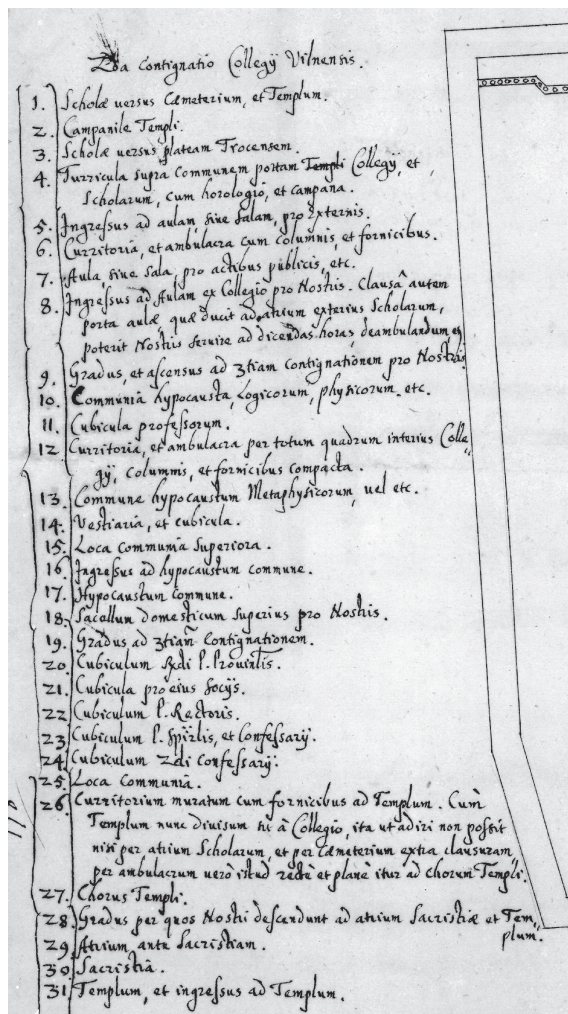 2da Contignatio Collegÿ Vilnensis.
1. Scholæ uersus Cæmeterium, et Templum.
2. Campanile Templi.
3. Scholæ uersus plateam Trocensem.
4. Turricula supra Communem portam Templi Collegÿ, et
Scholarum, cum horologio, et campana.
5. Ingressus ad aulam siue salam, pro Externis.
6. Curritoria, et ambulacra cum columnis, et fornicibus.
7. Aula siue Sala, pro actibus publicis, etc.
8. Ingressus ad Aulam ex Collegio pro Nostris. Clausa autem
porta aulæ quæ ducit ad atrium exterius Scholarum,
poterit Nostris seruire ad dicendas horas, deambulandum
9. Gradus, et ascensus ad 3tiam contignationem pro Nostris
10. Communia hypocausta, Logicorum, physicorum. etc.
11. Cubicula professorum.
12 Curritoria, et ambulacra per totum quadrum interius Colle=
gÿ, columnis, et fornicibus compacta.
13. Commune hypocaustum Metaphysicorum, uel etc.
14. Vestiaria, et cubicula.
15. Loca Communia Superiora.
16. Ingressus ad hypocaustum commune.
17. Hypocaustum Commune.
18. Sacellum domesticum superius pro Nostris.
19. Gradus ad 3tiam Contignationem.
20 Cubiculum P. Prouintlis.
21. Cubicula pro eius Socÿs.
22 Cubiculum P. Rectoris.
23 Cubiculum P. Spirlis, et Confessarÿ.
24 Cubiculum 2di Confessarÿ.
25. Loca Communia.
26. Curritorium muratum cum fornicibus ad Templum. Cum
Templum nunc diuisum sit à Collegio, ita ut adiri non possit
nisi per atrium Scholarum, et per Cæmeterium extra clausuram,
per ambulacrum uerò istud rectè et planè itur ad chorum Templi.
27. Chorus Templi.
28. Gradus per quos Nostri descendunt ad atrium Sacristiæ et Tem=
plum.
29. Atrium ante Sacristiam.
30. Sacristia.
31. Templum, et ingressus ad Templum.